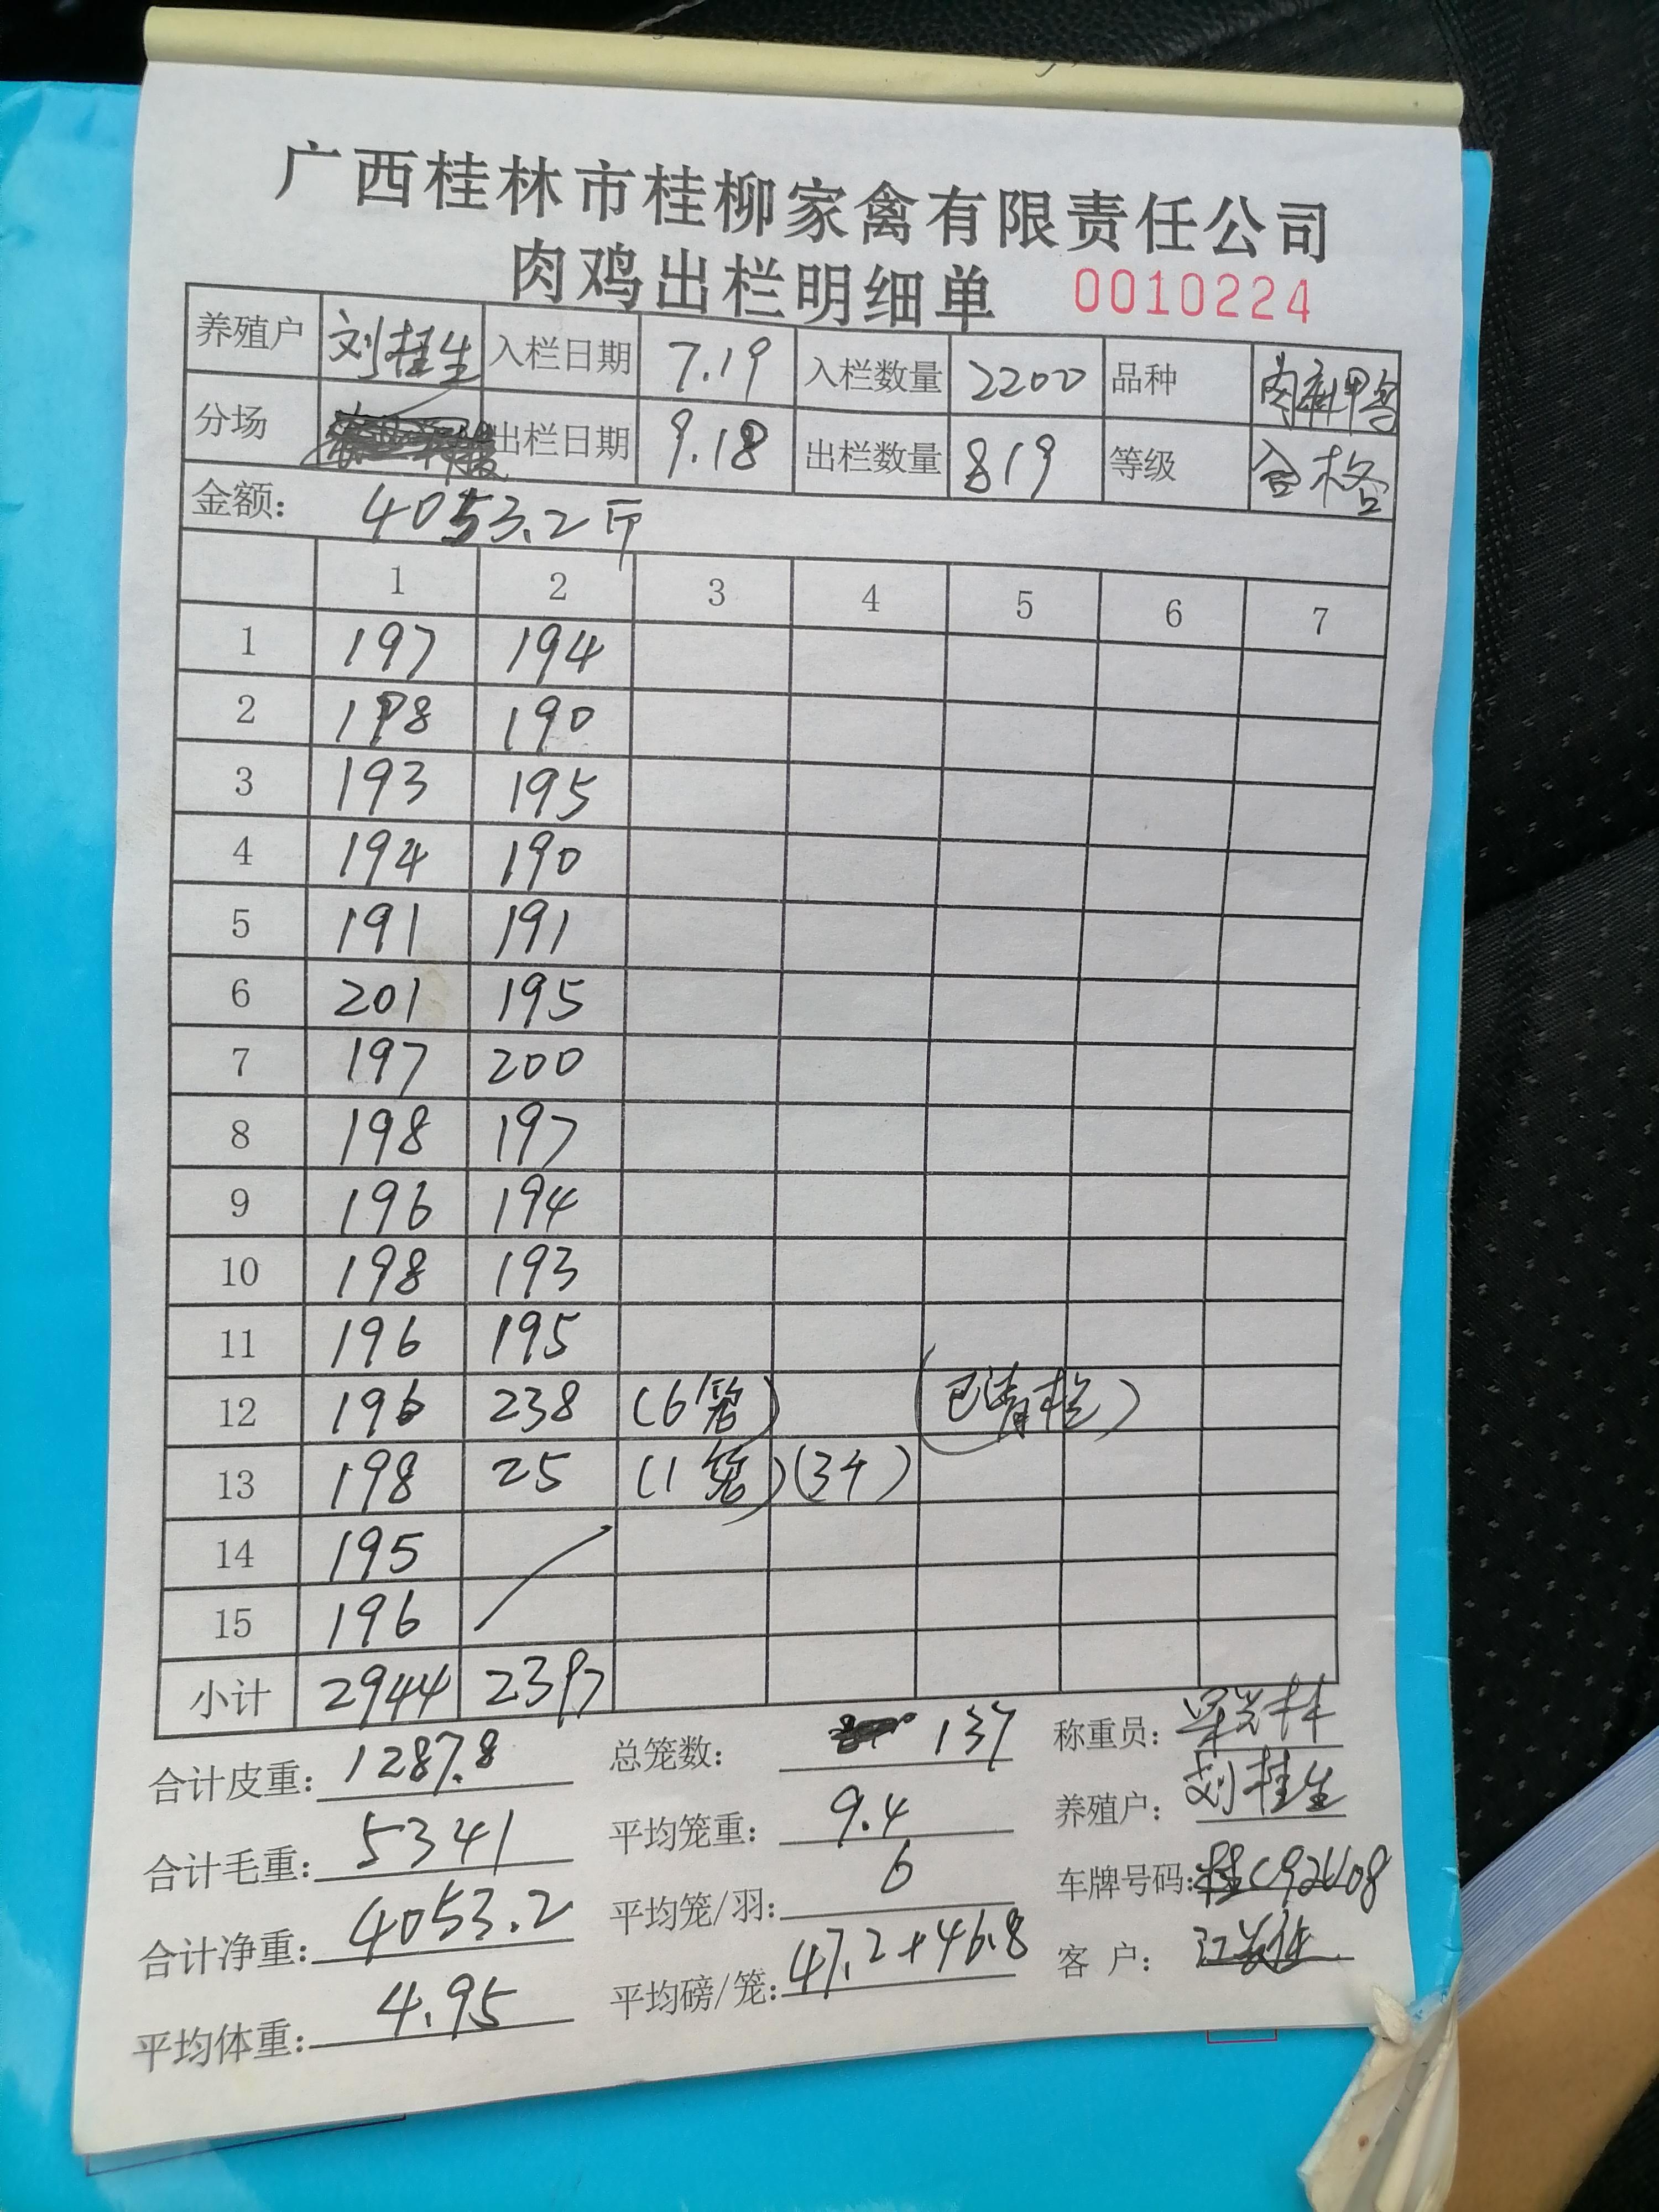 广西桂林市桂柳家禽有限责任公司
肉鸡出栏明细单 0010224
养殖户 刘桂生 入栏日期 7.19 入栏数量 2200 品种
分场 出栏日期 9.18 出栏数量 819 等级 合格
金额: 4053.2斤
1 2 3 4 5 6 7
1 197 194
2 198 190
3 193 195
4 194 190
5 191 191
6 201 195
7 197 200
8 198 197
9 196 194
10 198 193
11 196 195
12 196 238 (6笼) (已清栏)
13 198 25 (1笼) (3个)
14 195
15 196
小计 2944 2397
合计皮重: 1287.8 总笼数: 137 称重员:
合计毛重: 5341 平均笼重: 9.4 养殖户: 刘桂生
合计净重: 4053.2 平均笼/羽: 6 车牌号码:
平均体重: 4.95 平均磅/笼: 47.2+46.8 客户: